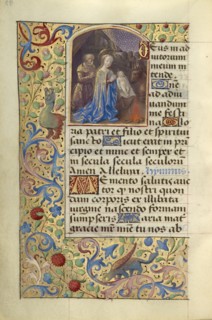 eus in ad
iutorium
meum in
tende. Dne
ad adiu
uandum
me festi
na Glo
ria patri et filio et spiritui
sancto Sicut erat in pri
cipio et nunc et semper et
in secula seculorum
Amen Alleluia. hymnus
Memento salutis auc
tor q nostri quon
dam corporis ex illibata
uirgine nascendo formam
sumpseris Maria mat
gracie mr mie tu nos ab